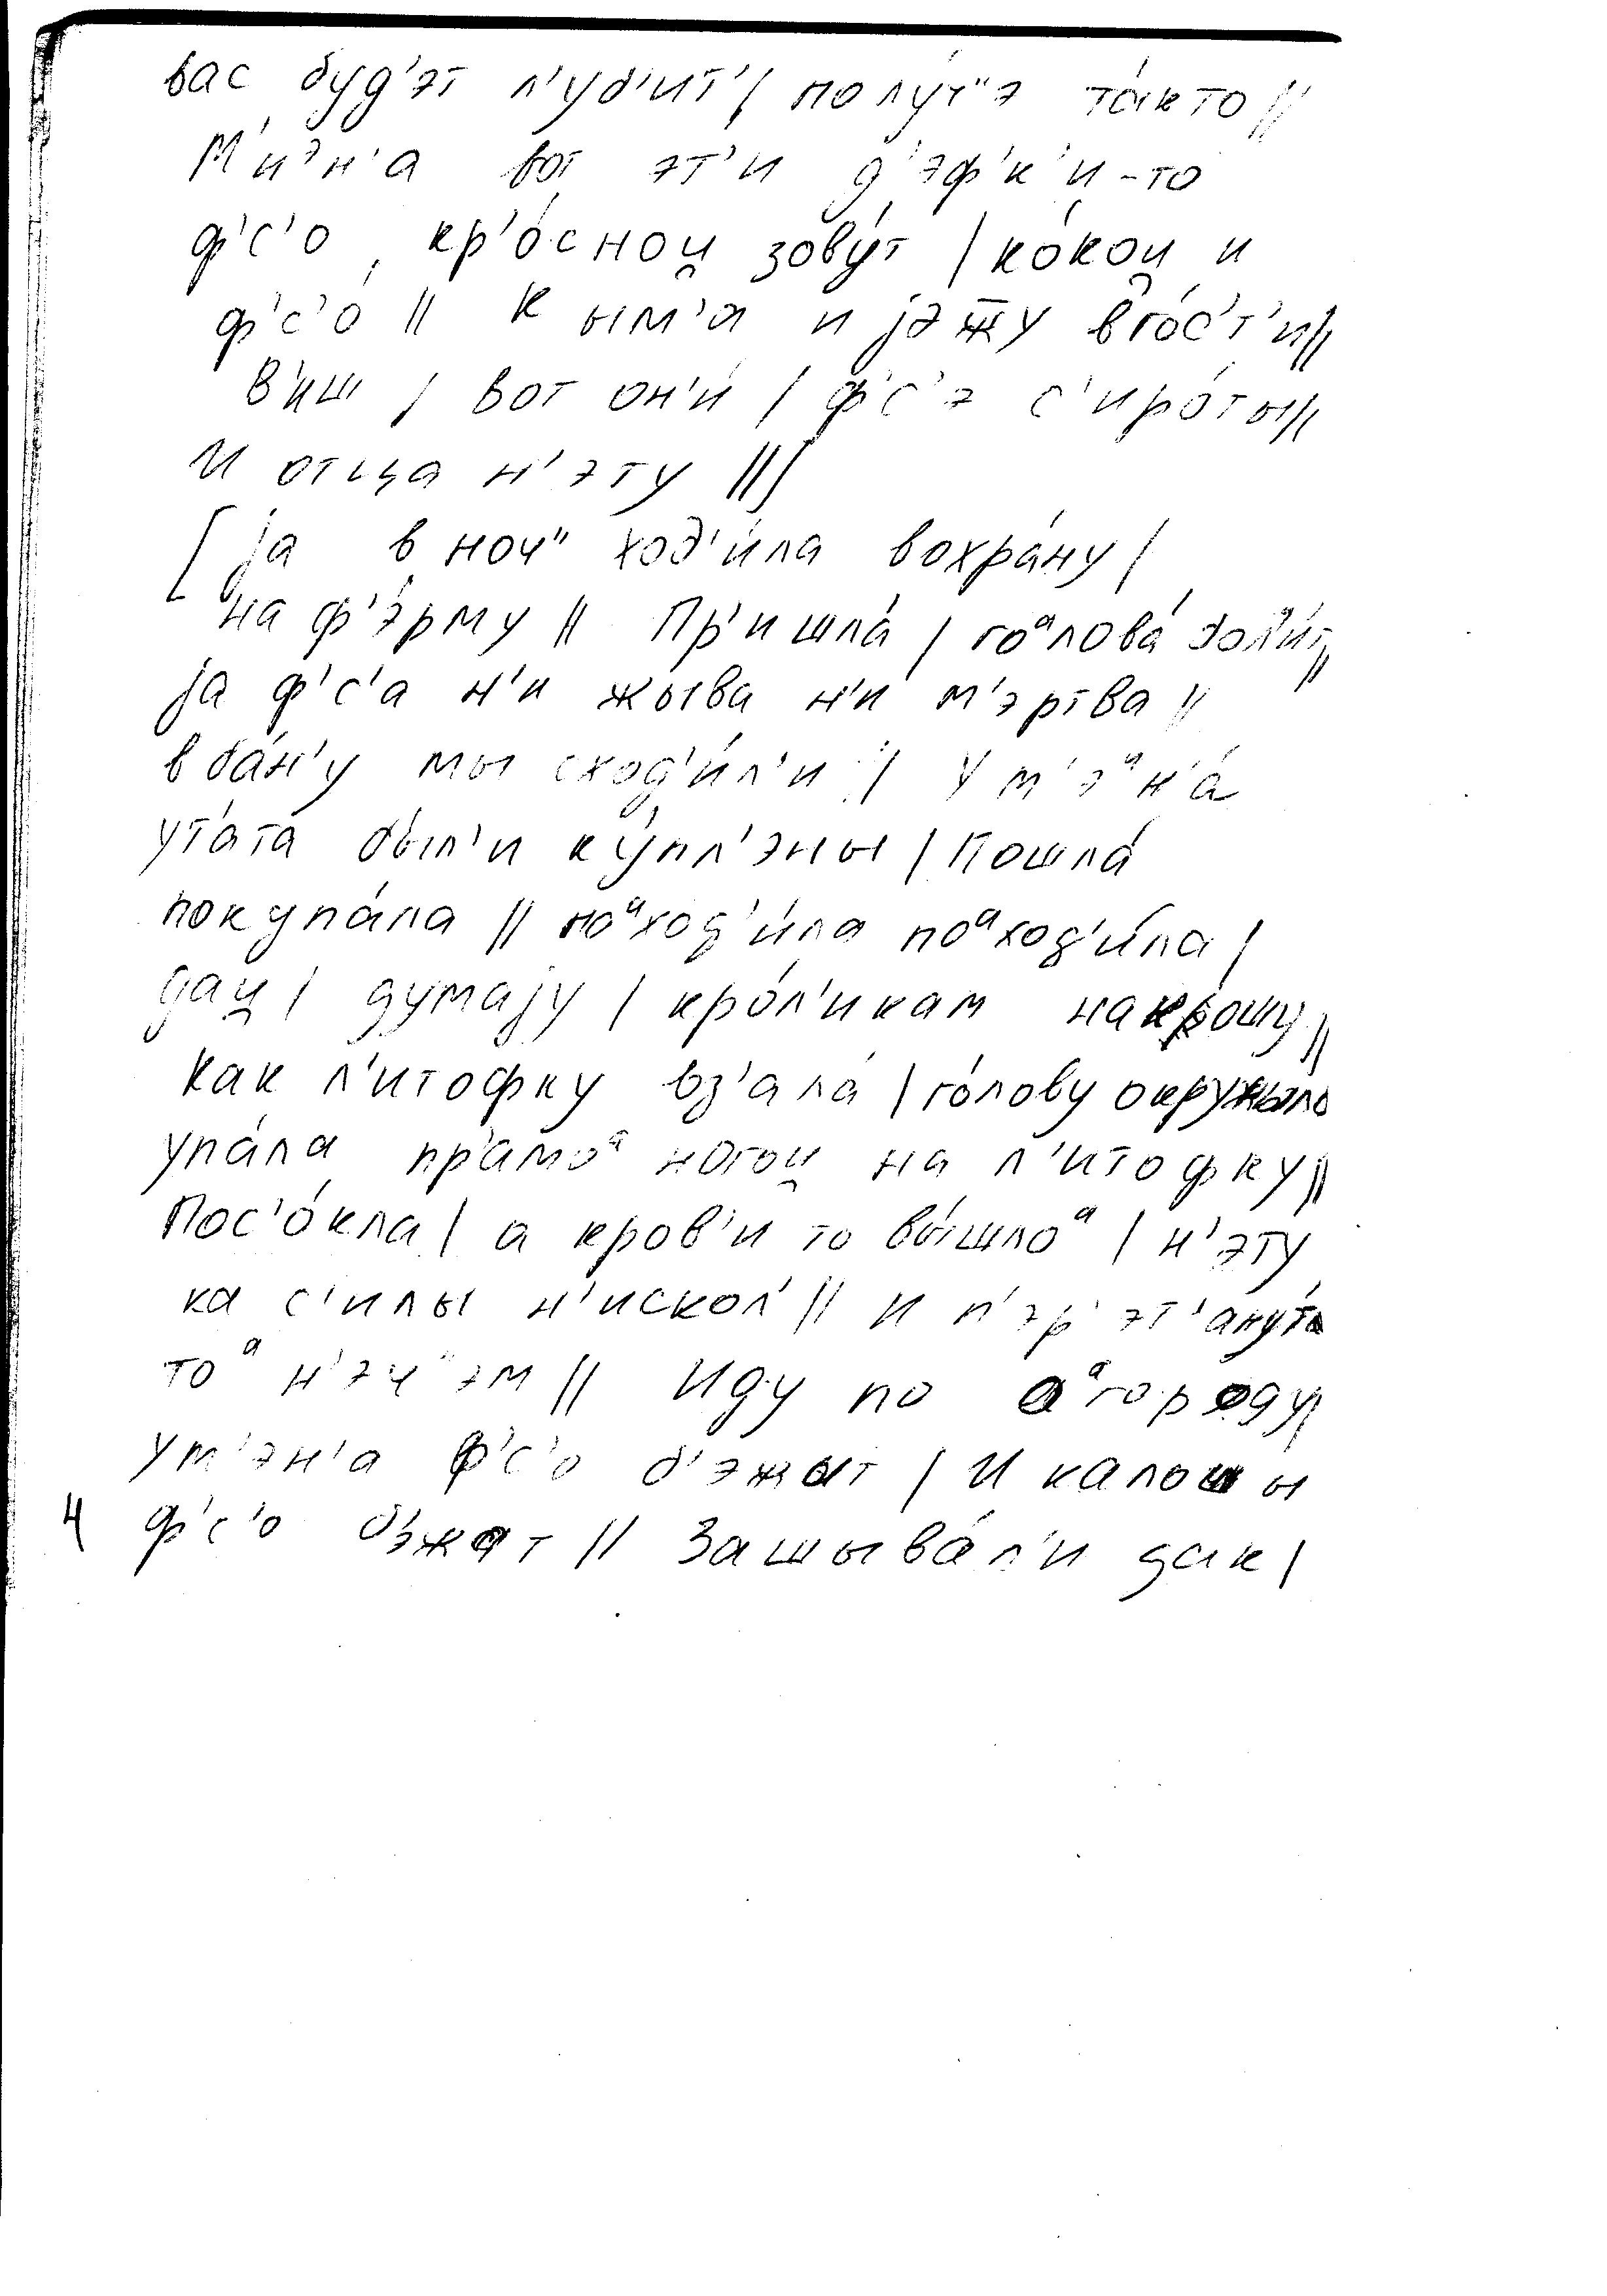 вас буд'эт л'уб'ит' | полу́ч"э та́кто ||
М'иэн'а вот эт'и д'эф'к'и-то
ф'с'о, кр'о́сноц зову́т | ко́коц и
ф'с'о́ || К ым'а и jэж̅у в го́с'т'и ||
В'иш | вот он'и́ | ф'с'э с'иро́ты ||
И отца н'эту ||]
[ jа в ноч" ход'и́ла в охра́ну |
на ф'э́рму || Пр'ишла́ | гоaлова́ бол'и́т ||
jа ф'с'а н'и жыва н'и м'эртва ||
в ба́н'у мы сход'и́л'и | У м'эин'а́
ут'а́та бы́л'и ку́пл'эны | Пошла́
покупа́ла || поaход'и́ла поaход'и́ла |
дац | думаjу | кро́л'икам накрошу ||
Как л'итофку вз'ала́ | го́лову окружыло
упа́ла пр'амоa ногоц на л'итофку ||
Пос'о́кла | а кров'и то вы́шлоa | н'эту
ка с'илы н'искол' || и п'эр'эт'ану́т'
тоa н'эч"эм || Иду по оaгороду |
у м'эн'а ф'с'о б'эжыт | И калошы
4 ф'с'о б'эжат || Зашыва́л'и дак |